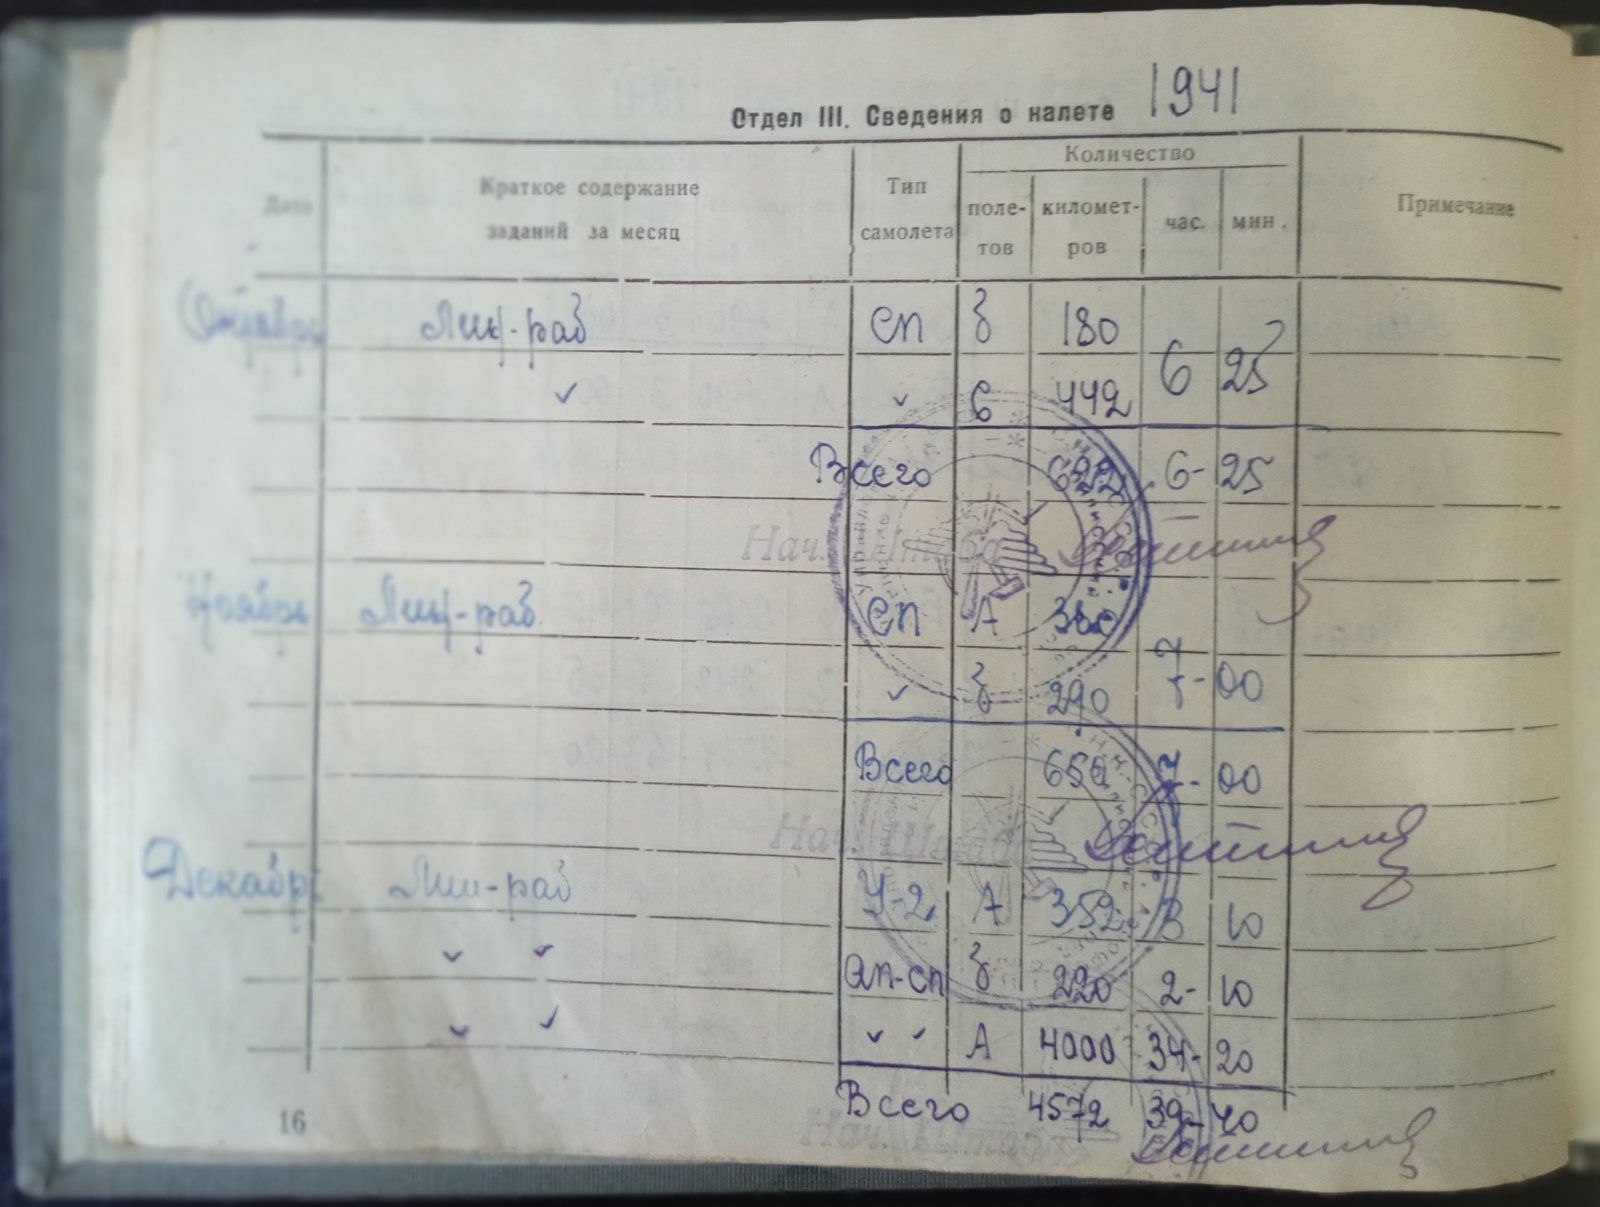 Отдел III. Сведения о налете 1941
Дата Краткое содержание заданий за месяц Тип самолета Количество Примечание
поле-тов километ-ров час. мин.
Октябрь Лин-раб СП З 180
" " 6 442 6 25
Всего 622 6-25
Нач. Штаба
Ноябрь Лин-раб СП А 360
" З 290 7-00
Всего 650 7-00
Нач. Штаба
Декабрь Лин-раб У-2 А 352 3 10
" " СП З 220 2-10
" " " " А 4000 34-20
Всего 4572 39-40
Нач. Штаба
16